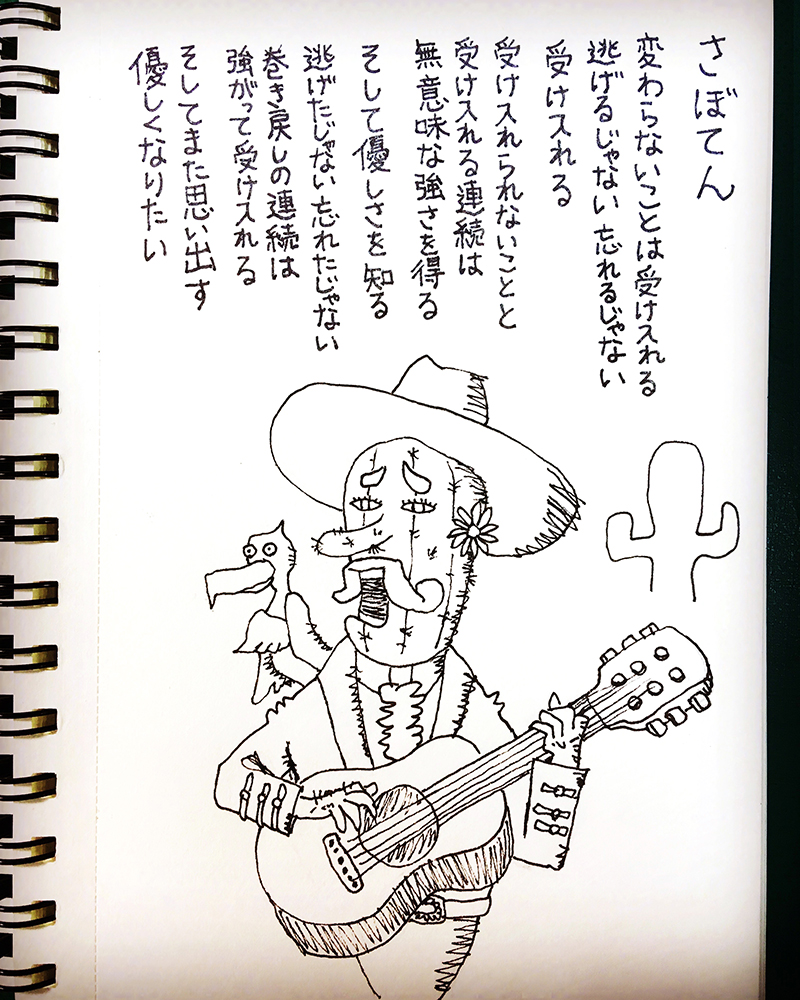 さぼてん
変わらないことは受け入れる
逃げるじゃない 忘れるじゃない
受け入れる
受け入れられないことと
受け入れる連続は
無意味な強さを得る
そして優しさを知る
逃げたじゃない 忘れたじゃない
巻き戻しの連続は
強がって受け入れる
そしてまた思い出す
優しくなりたい